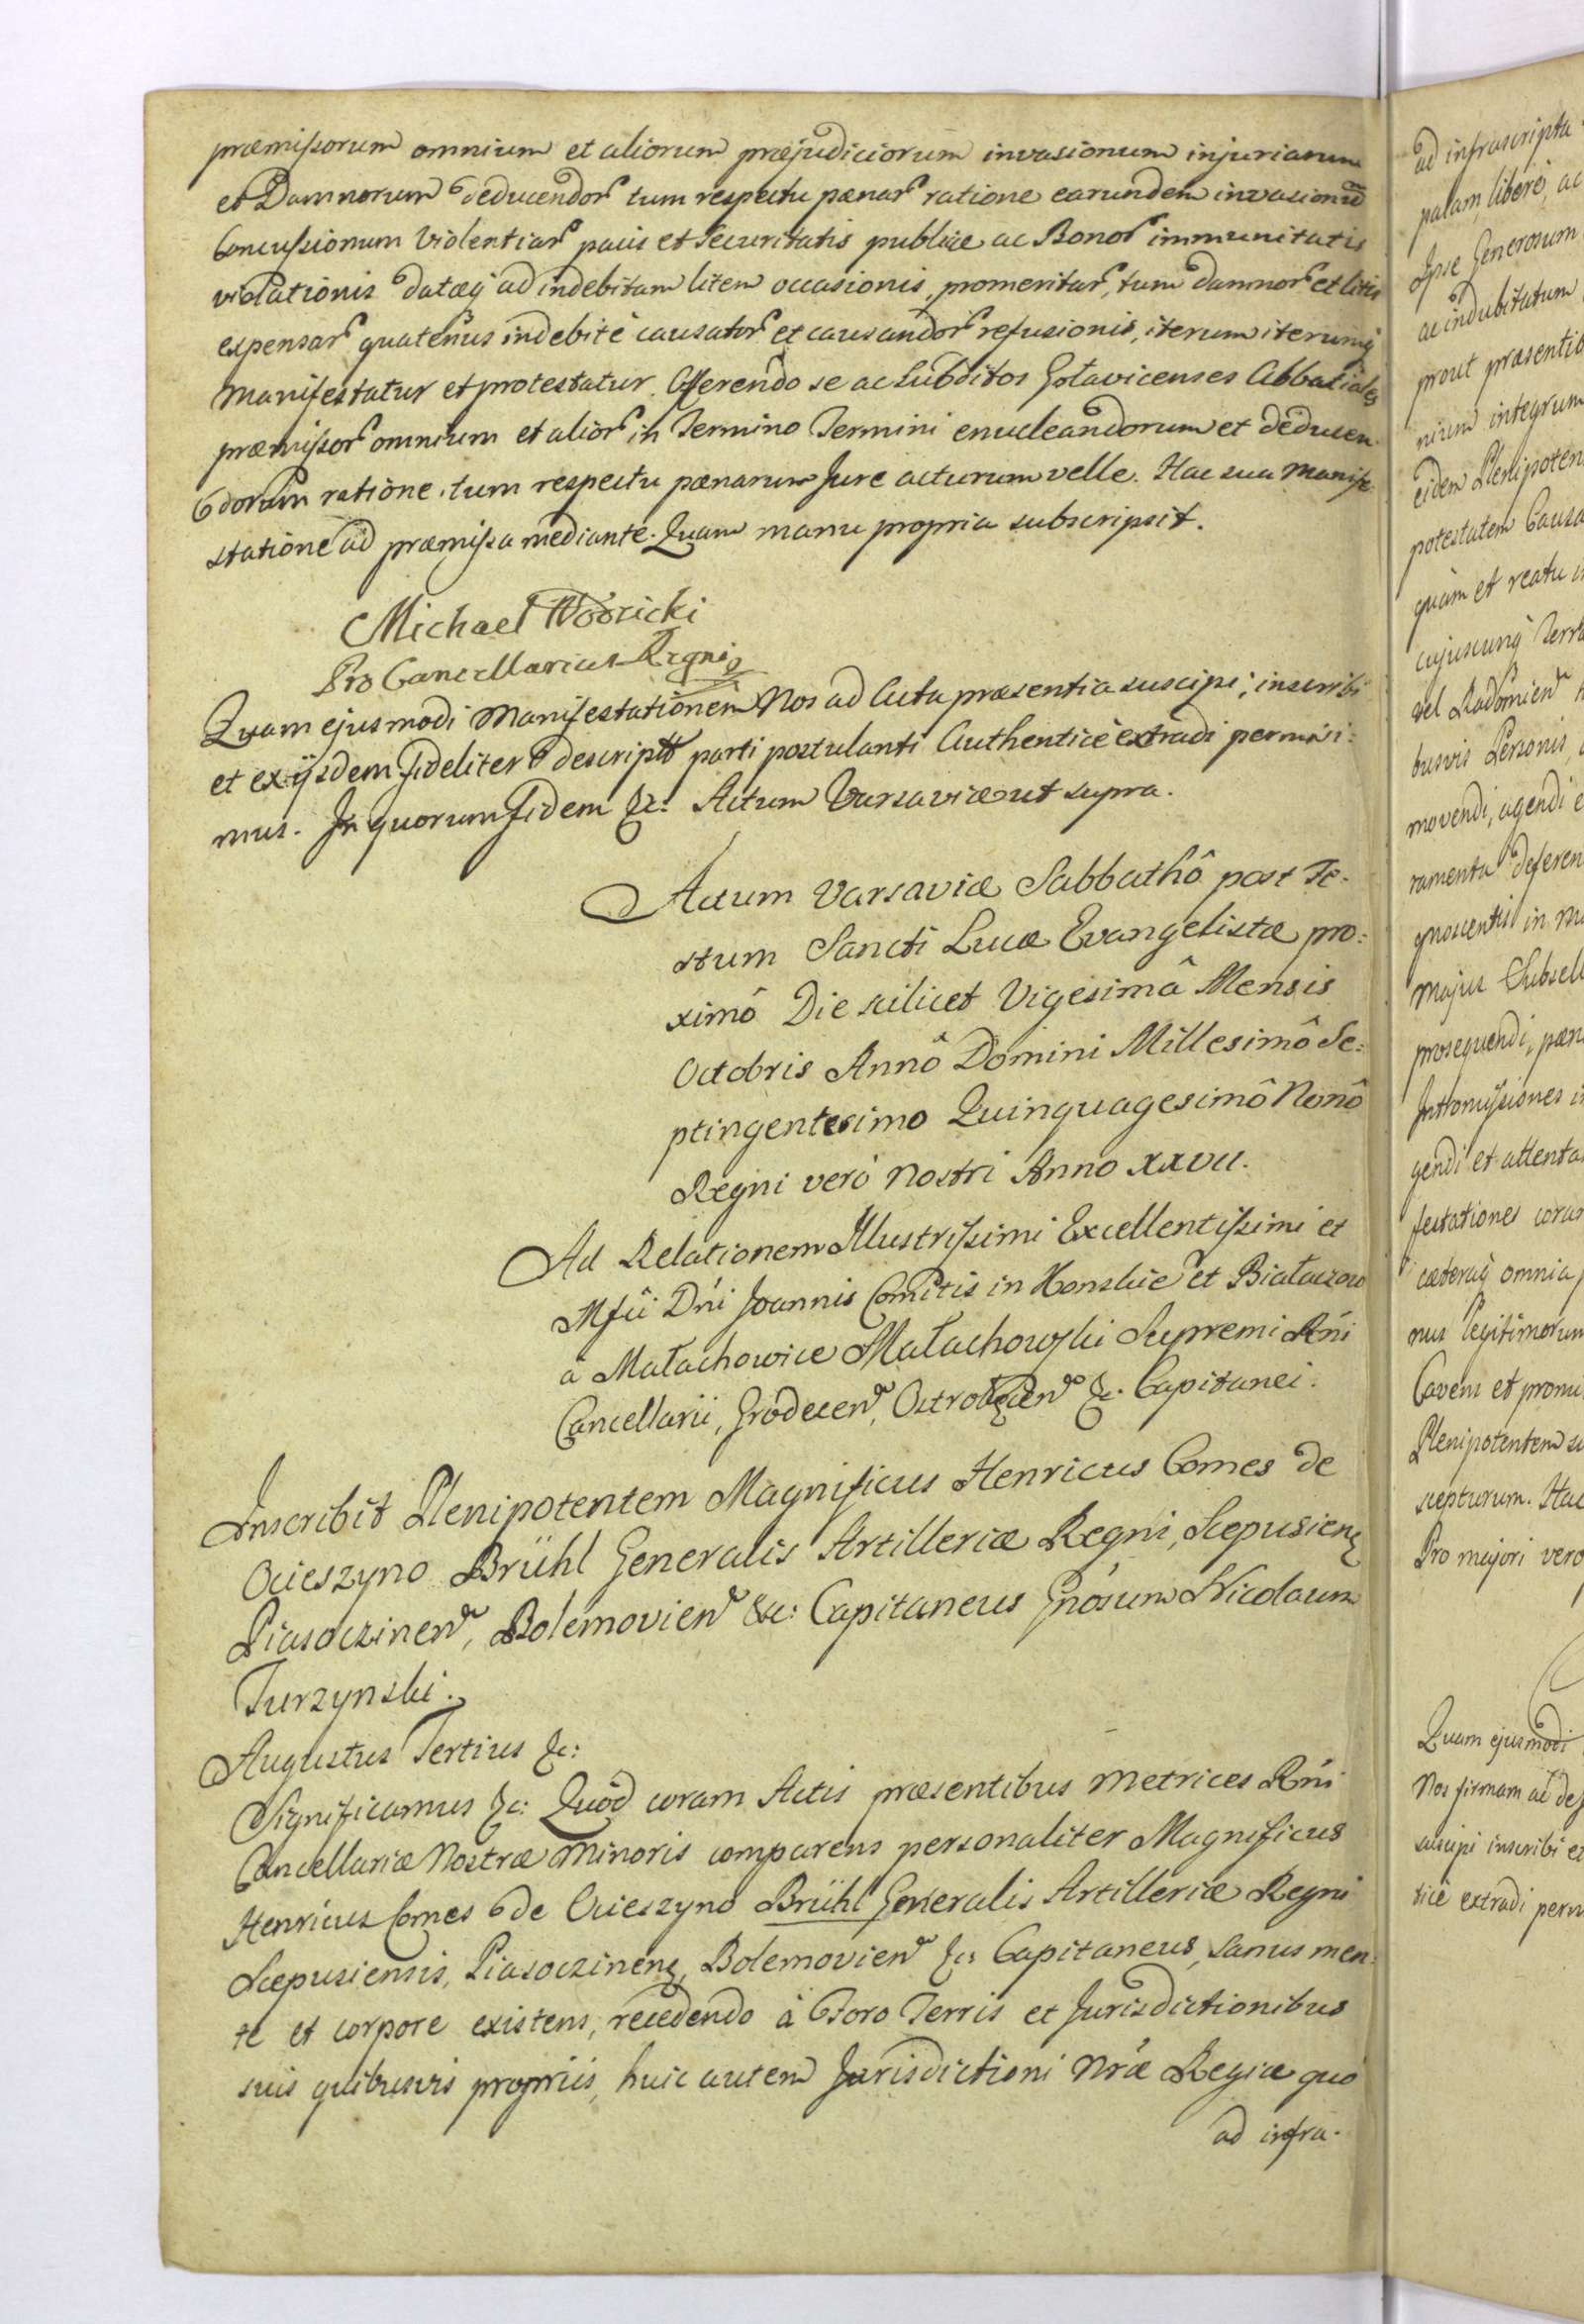 præmissorum omnium et aliorum præjudiciorum invasionum injuriarum
et Damnorum deducendor tum respectu pænar ratione earundem invasionu
Concussionum Violentiar pacis et Securitatis publicæ ac Bonor immunitatis
violationis datæq ad indebitam litem occasionis, promeritar, tum damnor et litis
expensar quatenus indebitè causator et causandor refusionis, iterum iterumq
Manifestatur et protestatur. Offerendo se ac Subditos Goławicenses Abbatiales
præmissor omnium et alior in Termino Termini enucleandorum et deducen
dorum ratione, tum respectu pænarum Jure acturum velle. Hac sua Manife
statione ad præmissa mediante. Quam manu propria subscripsit.
Michael Wodzicki
Pro Cancellarius Regni
Quam ejusmodi Manifestationem Nos ad Acta præsentia suscipi, inscribi
et ex ijsdem fideliter descriptã parti postulanti Authenticè extradi permisi:
mus. In quorum fidem &c: Actum Varsaviæ ut supra.
Actum Varsaviæ Sabbathô post Fe-
stum Sancti Lucæ Evangelistæ pro:
ximô Die scilicet Vigesimâ Mensis
Octobris Annô Domini Millesimô Se:
ptingentesimo Quinquagesimô Nonô
Regni verò Nostri Anno XXVII.
Ad Relationem Illustrissimi Excellentissimi et
Mfci Dni Joannis Comitis in Konskie et Białaczow
à Małachowice Małachowski Supremi Rni
Cancellarii, Grodecen, Ostrołęcen &c. Capitanei.
Inscribit Plenipotentem Magnificus Henricus Comes de
Ocieszyno Brühl Generalis Artilleriæ Regni, Scepusien
Piasoczinen, Bolemovien &c: Capitaneus Gnosum Nicolaum
Turzynski.
Augustus Tertius &c:
Significamus &c: Quod coram Actis præsentibus Metrices Rni
Cancellariæ Nostræ Minoris comparens personaliter Magnificus
Henricus Comes de Ocieszyno Brühl Generalis Artilleriæ Regni
Scepusiensis, Piasoczinen, Bolemovien &c: Capitaneus, sanus men:
te et corpore existens, recedendo à Foro Terris et Jurisdictionibus
suis quibusvis propriis, huic autem Jurisdictioni Nræ Regiæ quò
ad infra-
ad infrascripta
palam, liberè, ac
Ipse Generosum
ac indubitatum
prout præsentib
nium integrum
eidem Plenipoten
potestatem Causa
quàm et reatu
cujuscunq Terra
vel Radomien
busvis Personis,
movendi, agendi e
ramenta deferen
gnoscentis in
majus Subsell
prosequendi, pæn
Intromissiones i
gendi et attenta
festationes coram
cæteraq omnia
nus legitimorum
Cavens et promi
Plenipotentem su
scepturum. Hac
Pro majori vero
Quam ejusmodi
Nos firmam ac de
suscipi inscribi et
ticè extradi perm